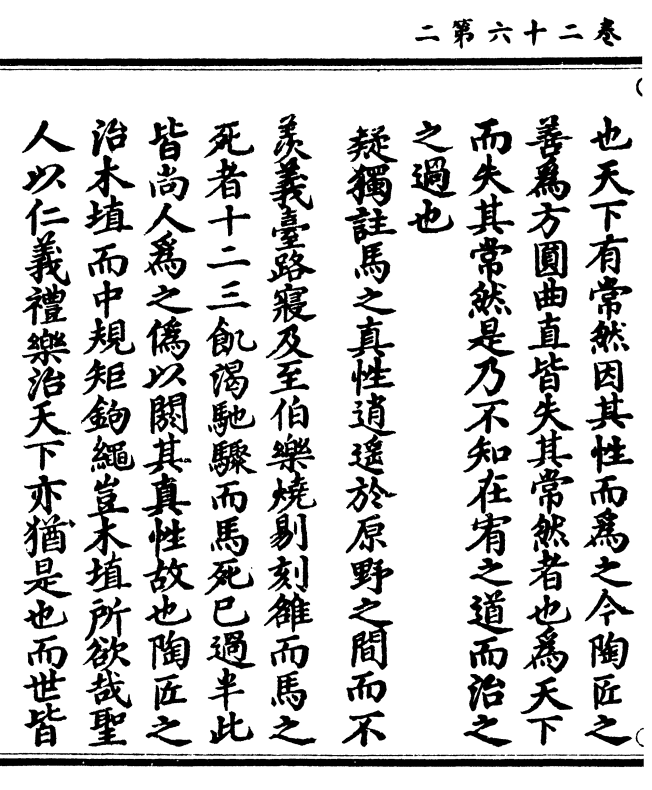 卷二十六第二
也天下有常然因其性而爲之今陶匠之
善爲方圓曲直皆失其常然者也爲天下
而失其常然是乃不知在宥之道而治之
之過也
疑獨註馬之真性逍遙於原野之間而不
羨義臺路寢及至伯樂燒剔刻雒而馬之
死者十二三飢渴馳驟而馬死已過半此
皆尚人爲之僞以閼其真性故也陶匠之
治木埴而中規矩鉤繩豈木埴所欲哉聖
人以仁義禮樂治天下亦猶是也而世皆